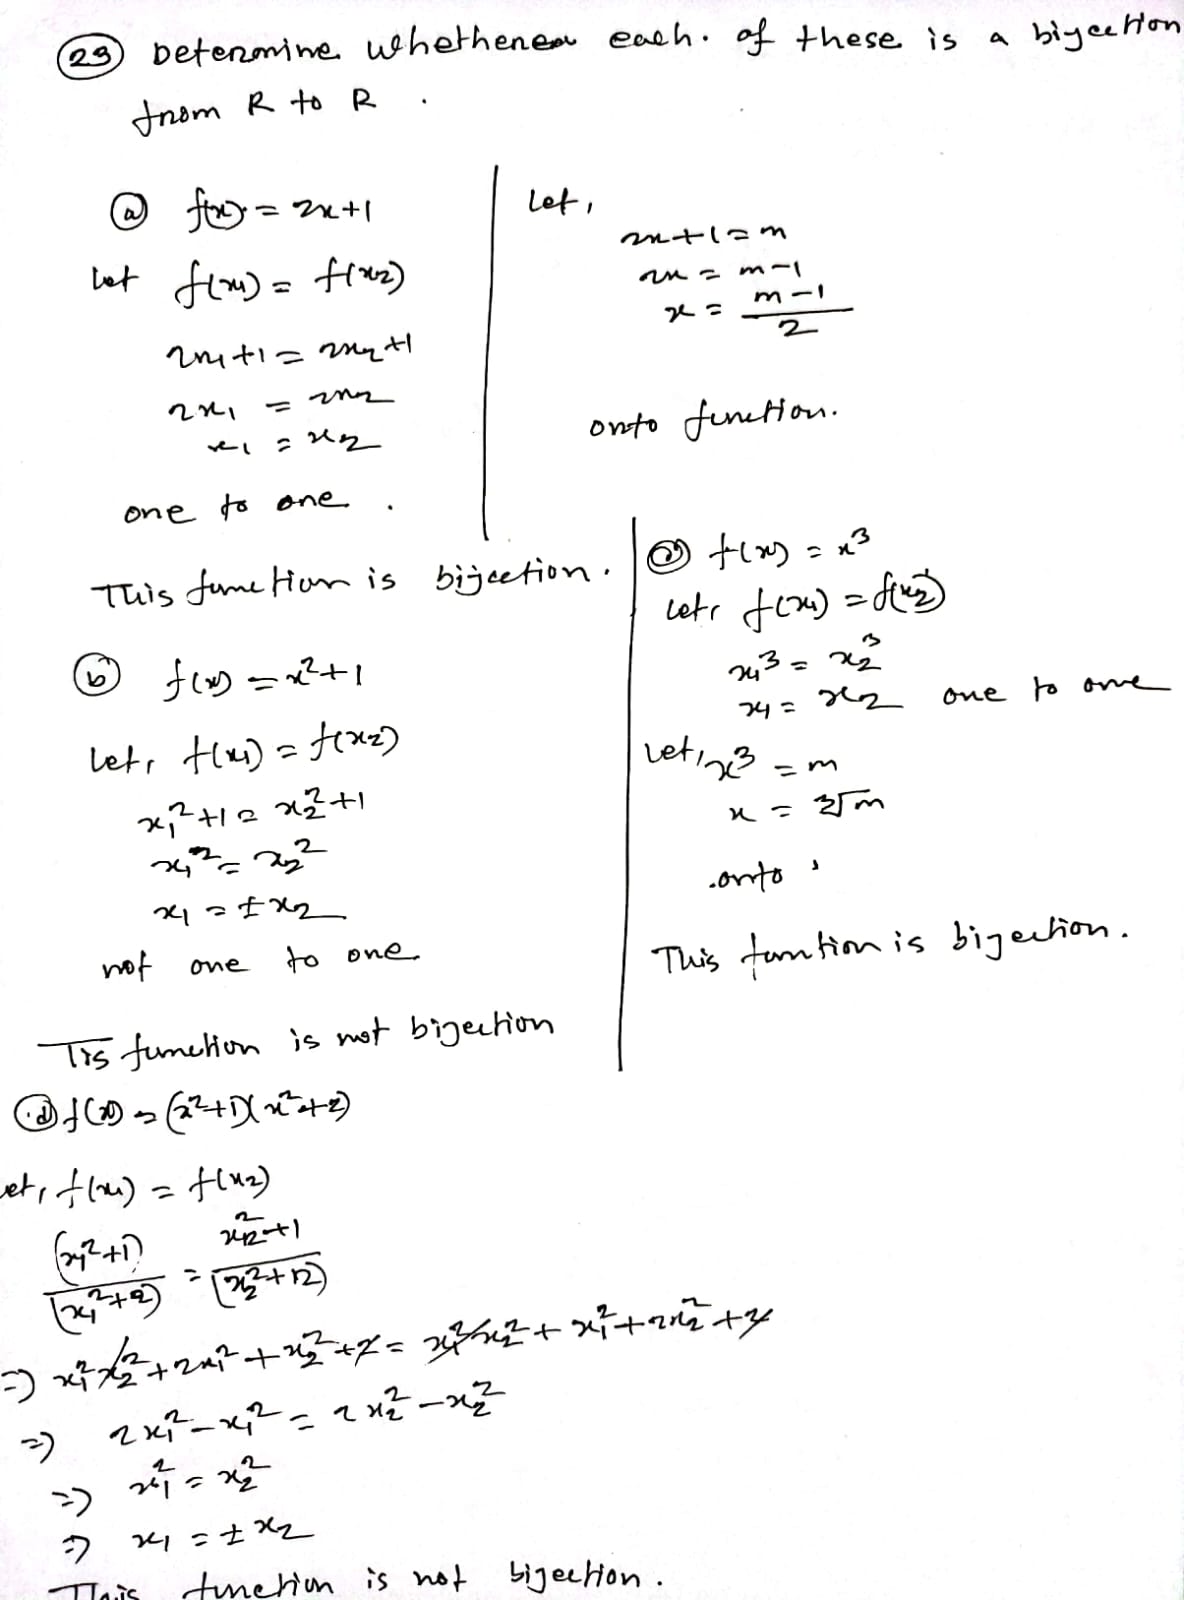 23 Determine whetherea each. of these is a bijection
from R to R .
(a) f(x) = 2x+1
Let f(x1) = f(x2)
2x1+1 = 2x2+1
2x1 = 2x2
x1 = x2
one to one .
Let,
2x+1=m
2x = m-1
x = (m-1)/2
onto function.
This function is bijection.
(b) f(x) = x²+1
Let, f(x1) = f(x2)
x1²+1 = x2²+1
x1² = x2²
x1 = ± x2
not one to one
Tis function is not bijection
(c) f(x) = x³
Let, f(x1) = f(x2)
x1³ = x2³
x1 = x2 one to one
Let, x³ = m
x = ∛m
.onto
This funtion is bijection.
(d) f(x) = (x²+1)(x²+2)
et, f(x1) = f(x2)
(x1²+1)/(x1²+2) = x2²+1/(x2²+2)
=> x1²x2²+2x1²+x2²+2 = x1²x2²+x1²+2x2²+2
=> 2x1²-x1² = 2x2²-x2²
=> x1² = x2²
=> x1 = ± x2
This function is not bijection.